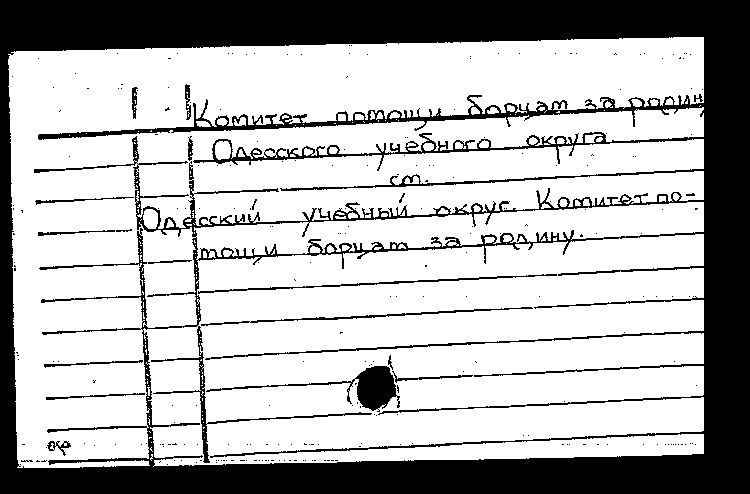 Комитет помощи борцам за родин
Одесского учебного округа
см.
Одесский учебный округ. Комитет по-
мощи борцам за родину.